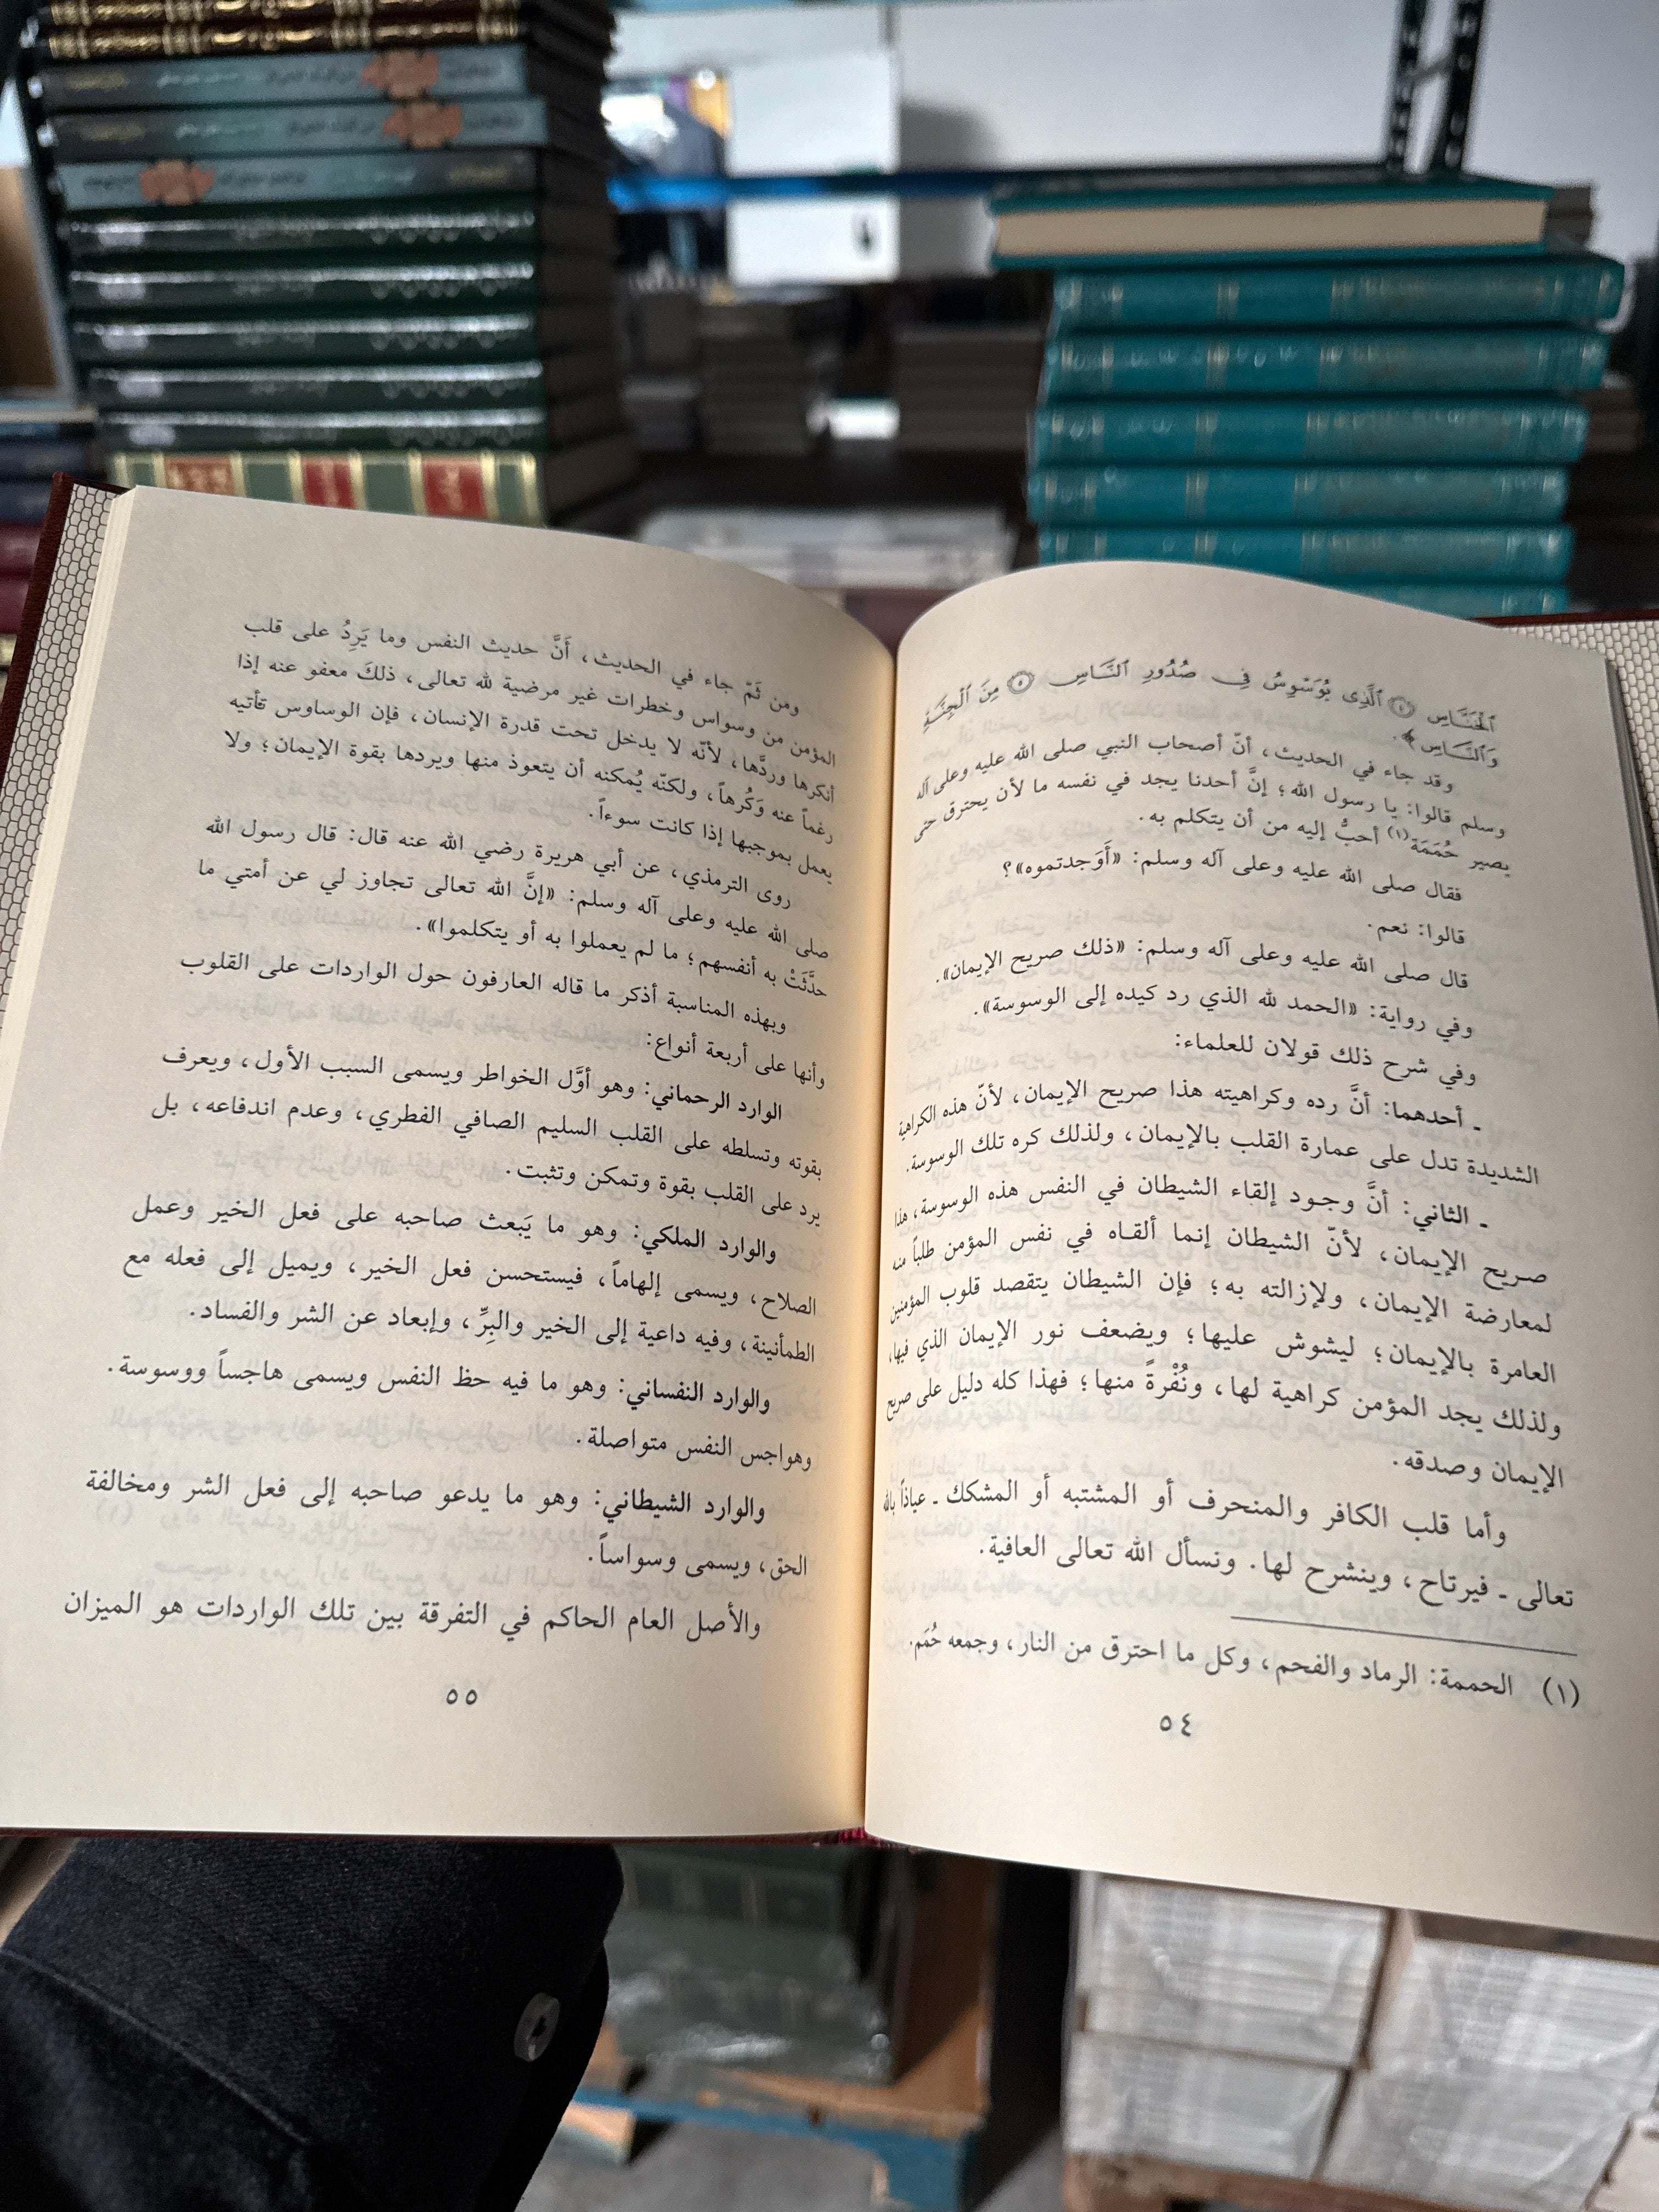 ٱلْخَنَّاسِ ٤ ٱلَّذِى يُوَسْوِسُ فِى صُدُورِ ٱلنَّاسِ ٥ مِنَ ٱلْجِنَّةِ
وَٱلنَّاسِ﴾.
وقد جاء في الحديث، أنّ أصحاب النبي صلى الله عليه وعلى آله
وسلم قالوا: يا رسول الله؛ إنَّ أحدنا يجد في نفسه ما لأن يحترق حتى
يصير حُمَمَة(١) أحبُّ إليه من أن يتكلم به.
فقال صلى الله عليه وعلى آله وسلم: «أَوَجدتموه»؟
قالوا: نعم.
قال صلى الله عليه وعلى آله وسلم: «ذلك صريح الإيمان».
وفي رواية: «الحمد لله الذي رد كيده إلى الوسوسة».
وفي شرح ذلك قولان للعلماء:
ـ أحدهما: أنَّ رده وكراهيته هذا صريح الإيمان، لأنّ هذه الكراهية
الشديدة تدل على عمارة القلب بالإيمان، ولذلك كره تلك الوسوسة.
ـ الثاني: أنَّ وجود إلقاء الشيطان في النفس هذه الوسوسة، هذا
صريح الإيمان، لأنّ الشيطان إنما ألقاه في نفس المؤمن طلباً منه
لمعارضة الإيمان، ولإزالته به؛ فإن الشيطان يتقصد قلوب المؤمنين
العامرة بالإيمان؛ ليشوش عليها؛ ويضعف نور الإيمان الذي فيها،
ولذلك يجد المؤمن كراهية لها، ونُفْرةً منها؛ فهذا كله دليل على صريح
الإيمان وصدقه.
وأما قلب الكافر والمنحرف أو المشتبه أو المشكك ـ عياذاً بالله
تعالى ـ فيرتاح، وينشرح لها. ونسأل الله تعالى العافية.
(١) الحممة: الرماد والفحم، وكل ما احترق من النار، وجمعه حُمَم.
٥٤
ومن ثَمّ جاء في الحديث، أَنَّ حديث النفس وما يَرِدُ على قلب
المؤمن من وسواس وخطرات غير مرضية لله تعالى، ذلكَ معفو عنه إذا
أنكرها وردَّها، لأنّه لا يدخل تحت قدرة الإنسان، فإن الوساوس تأتيه
رغماً عنه وَكُرهاً، ولكنّه يُمكنه أن يتعوذ منها ويردها بقوة الإيمان؛ ولا
يعمل بموجبها إذا كانت سوءاً.
روى الترمذي، عن أبي هريرة رضي الله عنه قال: قال رسول الله
صلى الله عليه وعلى آله وسلم: «إنَّ الله تعالى تجاوز لي عن أمتي ما
حدَّثَتْ به أنفسهم؛ ما لم يعملوا به أو يتكلموا».
وبهذه المناسبة أذكر ما قاله العارفون حول الواردات على القلوب
وأنها على أربعة أنواع:
الوارد الرحماني: وهو أوَّل الخواطر ويسمى السبب الأول، ويعرف
بقوته وتسلطه على القلب السليم الصافي الفطري، وعدم اندفاعه، بل
يرد على القلب بقوة وتمكن وتثبت.
والوارد الملكي: وهو ما يَبعث صاحبه على فعل الخير وعمل
الصلاح، ويسمى إلهاماً، فيستحسن فعل الخير، ويميل إلى فعله مع
الطمأنينة، وفيه داعية إلى الخير والبِرِّ، وإبعاد عن الشر والفساد.
والوارد النفساني: وهو ما فيه حظ النفس ويسمى هاجساً ووسوسة.
وهواجس النفس متواصلة.
والوارد الشيطاني: وهو ما يدعو صاحبه إلى فعل الشر ومخالفة
الحق، ويسمى وسواساً.
والأصل العام الحاكم في التفرقة بين تلك الواردات هو الميزان
٥٥